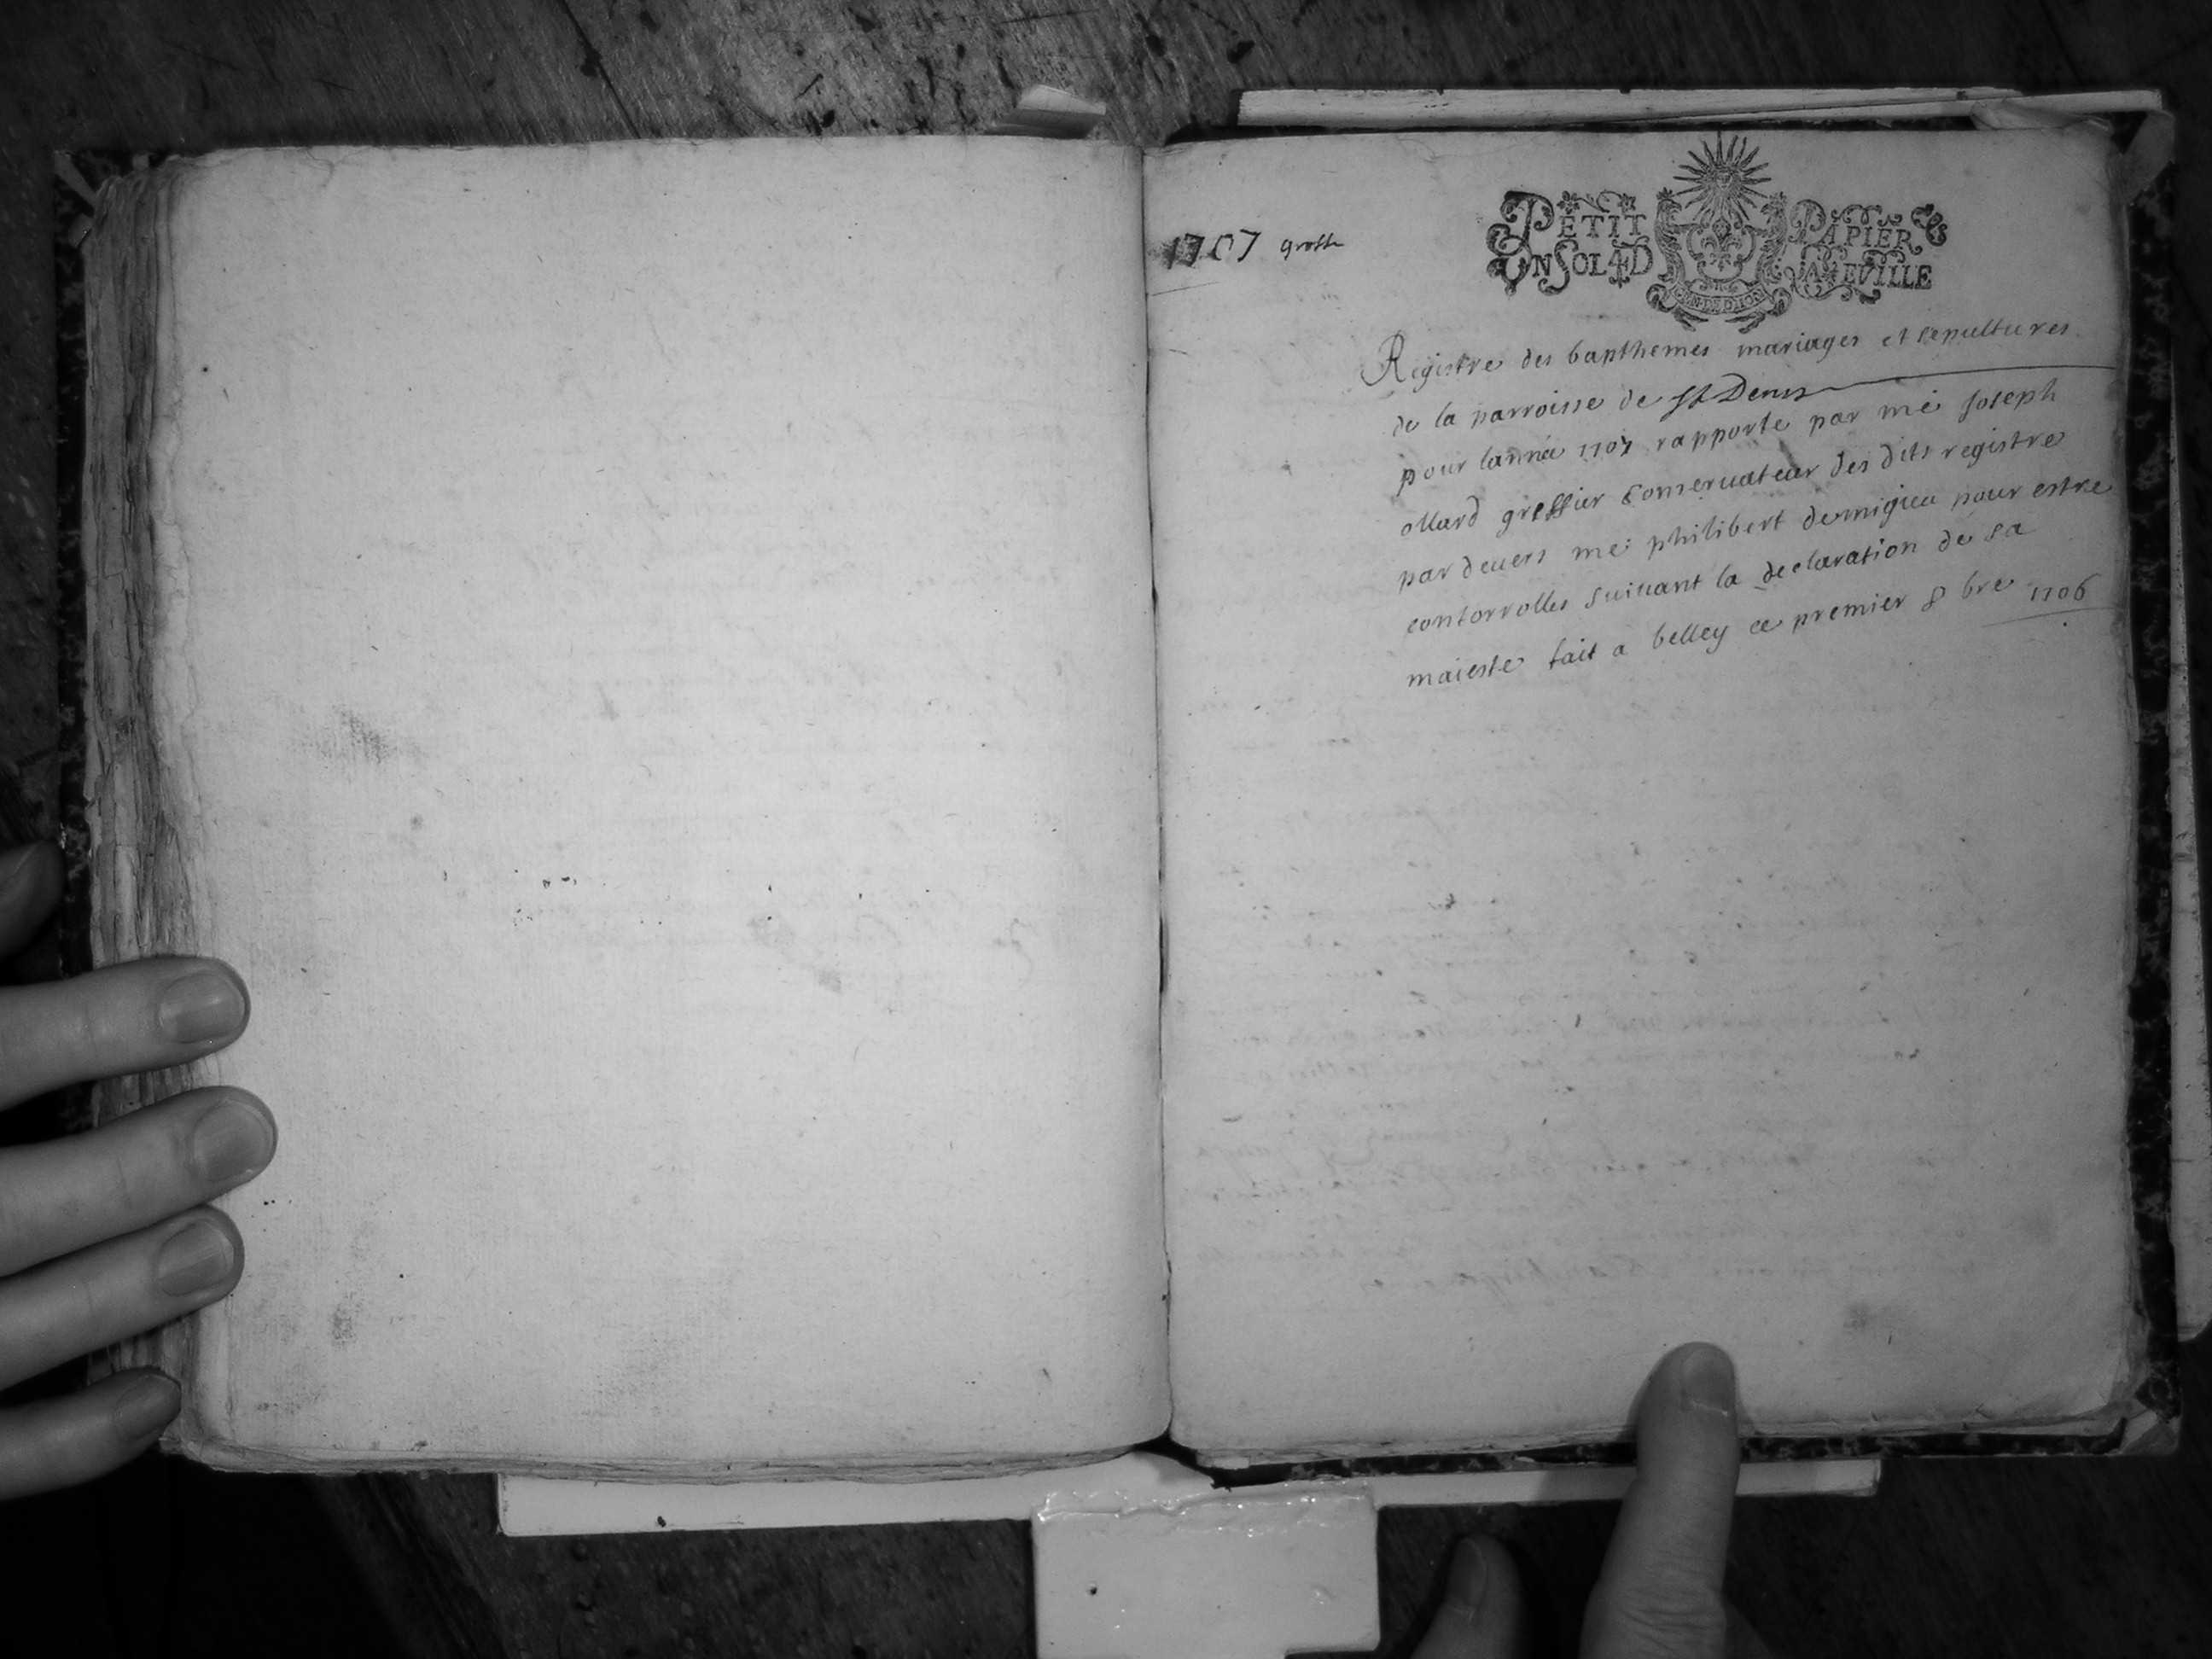 1707 grosse
PETIT PAPIER
UN SOL 4 D LA FEVILLE
GEN DE DIION
Registre des bapthemes mariages et sepultures
de la parroisse de St Denis
pour lannéé 1707 rapporte par me Joseph
ollard greffier Conservateur des dits registre
par devers me philibert demigieu pour estre
contorrolles suivant la declaration de sa
maieste fait a belley ce premier 8 bre 1706